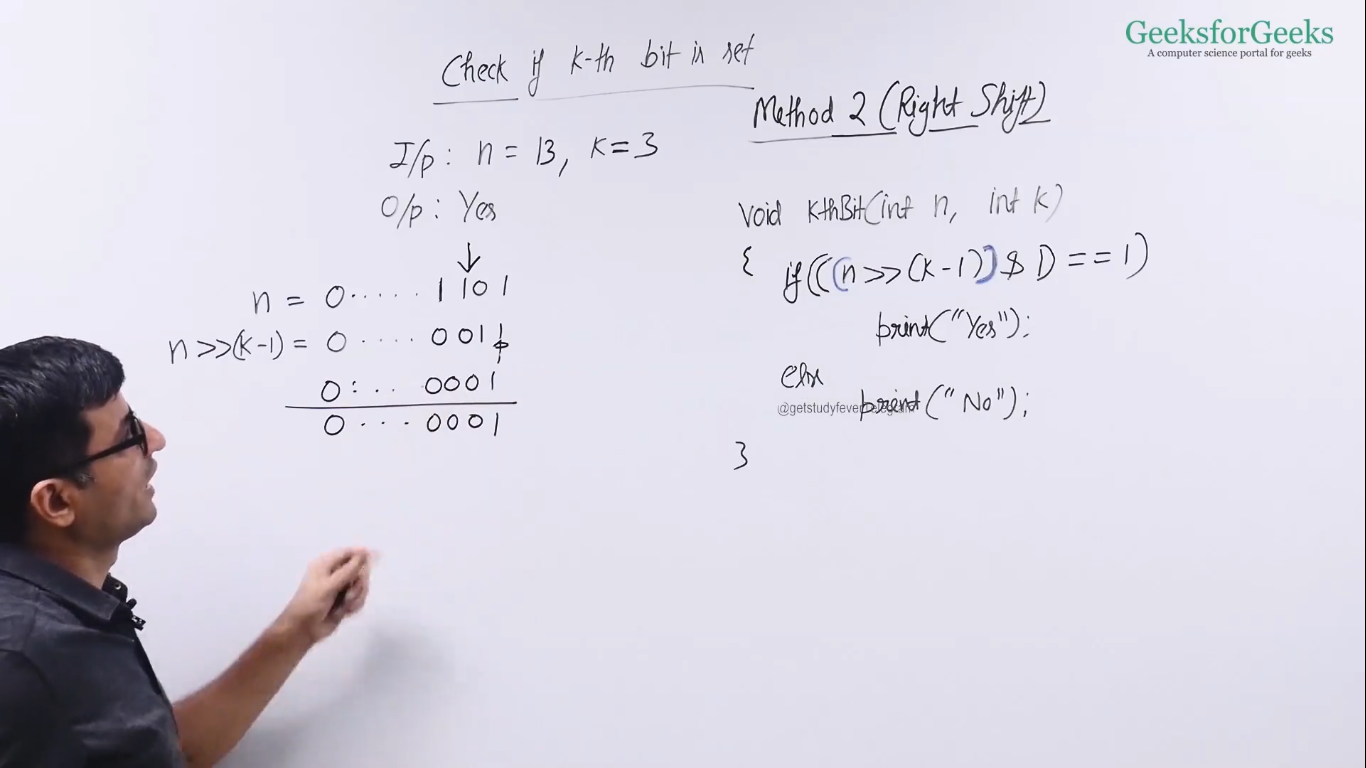 GeeksforGeeks
A computer science portal for geeks
Check if k-th bit is set
Method 2 (Right Shift)
I/p : n = 13, k = 3
O/p : Yes
n = 0 ..... 1 1 0 1
n >> (k-1) = 0 .... 0 0 1 1
0 ... 0 0 0 1
0 ... 0 0 0 1
void kthBit(int n, int k)
{ if(((n >> (k-1)) & 1) == 1)
print("Yes");
else
print("No");
@getstudyfever
}